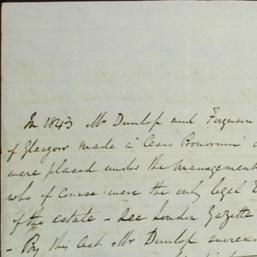 In 1843 Mr Dunlop and Ferguson
of Glasgow made a "Cesio Bonorum"
were placed under the management
who of Course were the only legal
of the estate - See London Gazette
- By this last Mr Dunlop